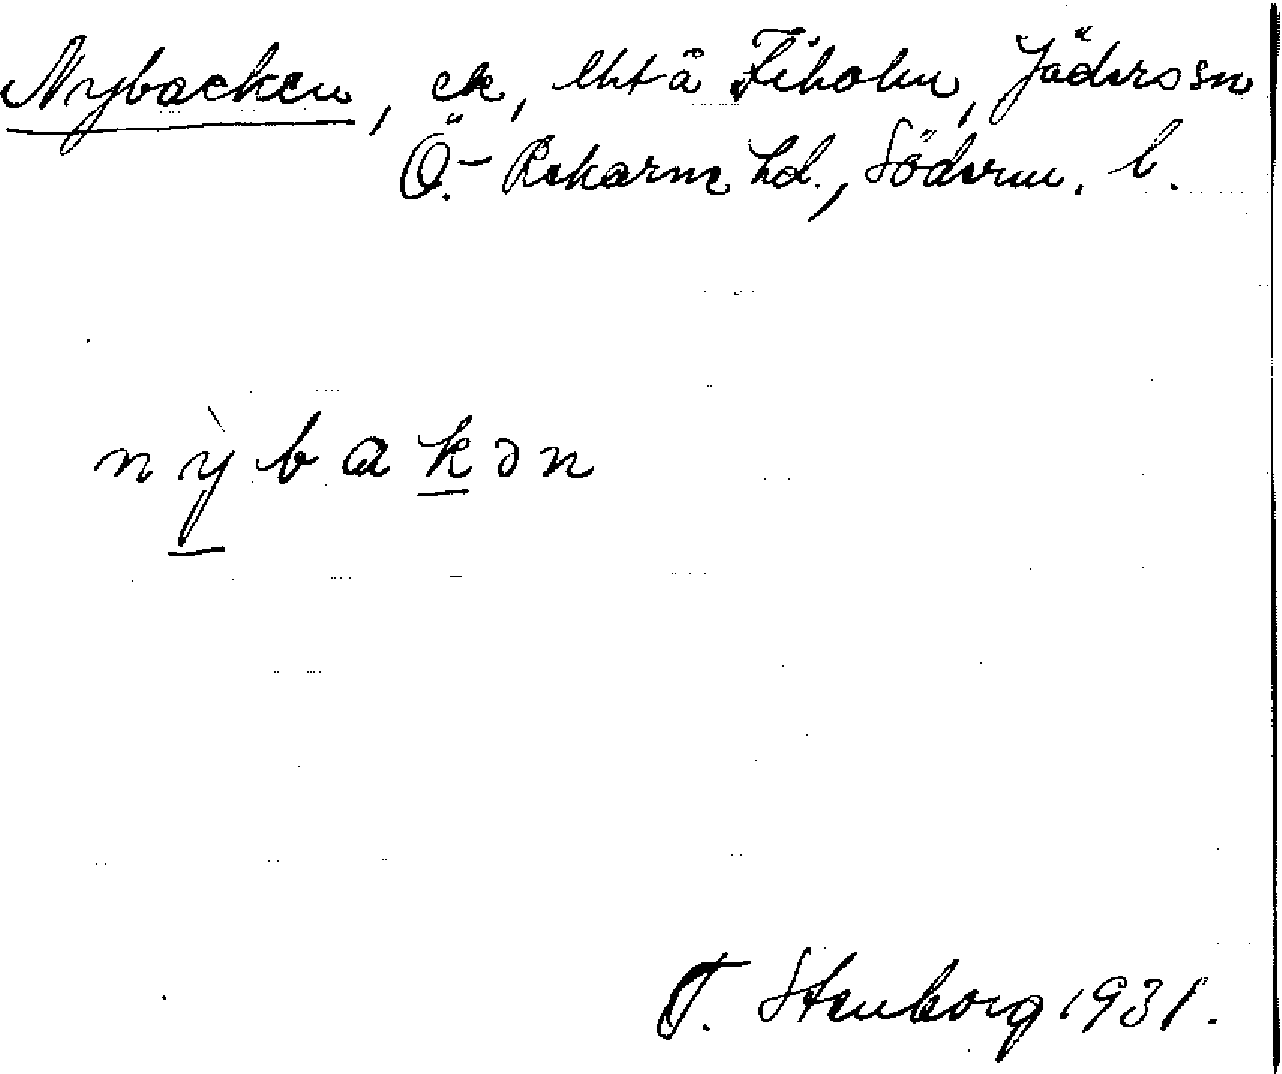 Nybacken, ek, lht å Fiholm, Jäders sn
Ö.- Rekarne hd., Söderm. l.
nỳbakən
T. Stenborg 1931.